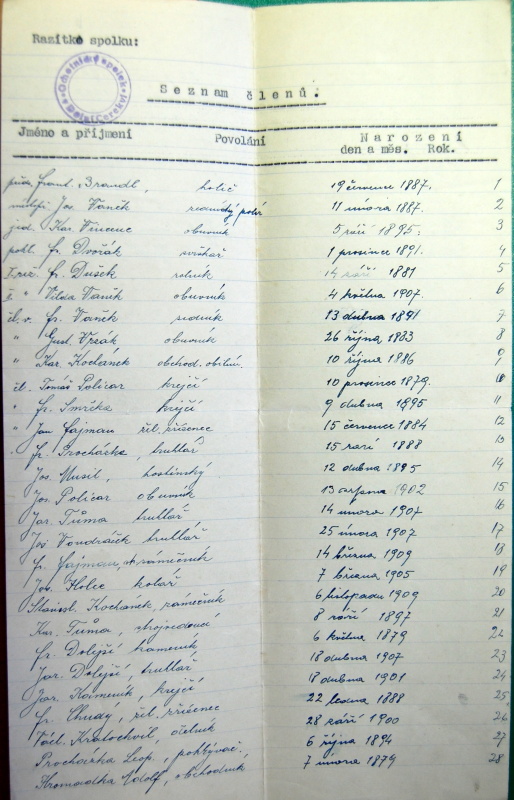 Razítko spolku:
Dolní Cerekvi
Seznam členů.
Jméno a příjmení Povolání Narození
den a měs. Rok.
Frant. Brandl, holič 19 července 1887. 1
Jos. Vaněk 11 února 1887. 2
jed. Kar. Vincenc obuvník 5 září 1895. 3
pokl. Fr. Dvořák 1 prosince 1891. 4
Fr. Dušek rolník 14 září 1881 5
" Vilda Vaněk obuvník 4 května 1907. 6
čl. v. Fr. Vaněk rolník 13 dubna 1891 7
" Gust. Vrzák obuvník 26 října 1883 8
" Kar. Kochánek obchod. obilím. 10 října 1886 9
čl. Tomáš Policar krejčí 10 prosince 1879. 10
" Fr. Smrčka krejčí 9 dubna 1895 11
" Jan Fajman žel. zřízenec 15 července 1884 12
" Fr. Procházka, truhlář 15 září 1888 13
Jos. Musil, hostinský 12 dubna 1895 14
Jos. Policar obuvník 13 srpna 1902 15
Jar. Tůma truhlář 14 února 1907 16
Jos. Vondráček truhlář 25 února 1907 17
Fr. Fajman, zámečník 14 března 1909 18
Jos. Holec kolář 7 března 1905 19
Stanisl. Kochánek, zámečník 6 listopadu 1909 20
Kar. Tůma, strojvedoucí 8 září 1897 21
Fr. Dolejší kameník 6 května 1879 22
Jar. Dolejší, truhlář 18 dubna 1907 23
Jar. Kameník, krejčí 18 dubna 1901 24
Fr. Chudý, žel. zřízenec 22 ledna 1888 25
Kratochvíl, účetník 28 září 1900 26
Procházka Leop., 6 října 1894 27
Hromadka Adolf, obchodník 7 února 1874 28